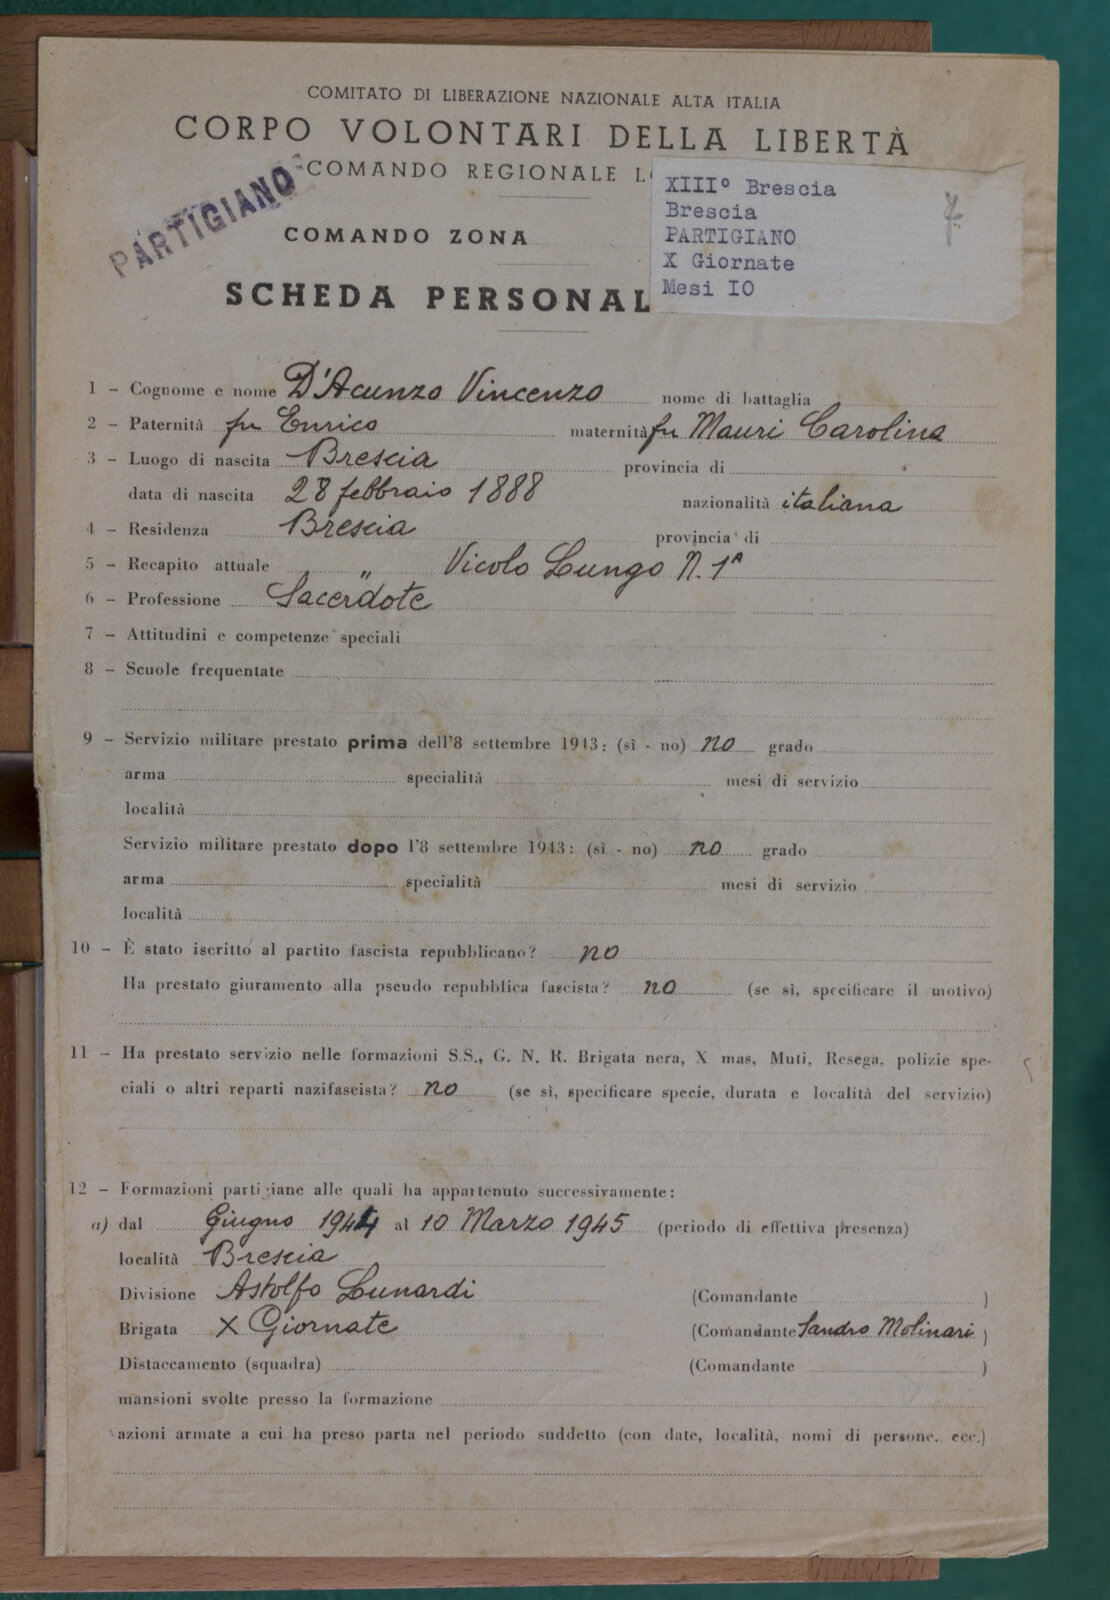 COMITATO DI LIBERAZIONE NAZIONALE ALTA ITALIA
CORPO VOLONTARI DELLA LIBERTÀ
COMANDO REGIONALE
PARTIGIANO
XIIIº Brescia
Brescia
PARTIGIANO
X Giornate
Mesi IO
COMANDO ZONA
SCHEDA PERSONAL
1 – Cognome e nome D'Acunzo Vincenzo nome di battaglia
2 – Paternità fu Enrico maternità fu Mauri Carolina
3 – Luogo di nascita Brescia provincia di
data di nascita 28 febbraio 1888 nazionalità italiana
4 – Residenza Brescia provincia di
5 – Recapito attuale " Vicolo Lungo N. 1ᴬ
6 – Professione Sacerdote
7 – Attitudini e competenze speciali
8 – Scuole frequentate
9 – Servizio militare prestato prima dell'8 settembre 1943: (sì - no) no grado
arma specialità mesi di servizio
località
Servizio militare prestato dopo l'8 settembre 1943: (sì - no) no grado
arma specialità mesi di servizio
località
10 – È stato iscritto al partito fascista repubblicano? no
Ha prestato giuramento alla pseudo repubblica fascista? no (se sì, specificare il motivo)
11 – Ha prestato servizio nelle formazioni S.S., G. N. R. Brigata nera, X mas, Muti, Resega, polizie spe-
ciali o altri reparti nazifascista? no (se sì, specificare specie, durata e località del servizio)
12 – Formazioni partigiane alle quali ha appartenuto successivamente:
a) dal Giugno 1944 al 10 Marzo 1945 (periodo di effettiva presenza)
località Brescia
Divisione Astolfo Lunardi (Comandante )
Brigata X Giornate (Comandante Sandro Molinari )
Distaccamento (squadra) (Comandante )
mansioni svolte presso la formazione
azioni armate a cui ha preso parta nel periodo suddetto (con date, località, nomi di persone, ecc.)